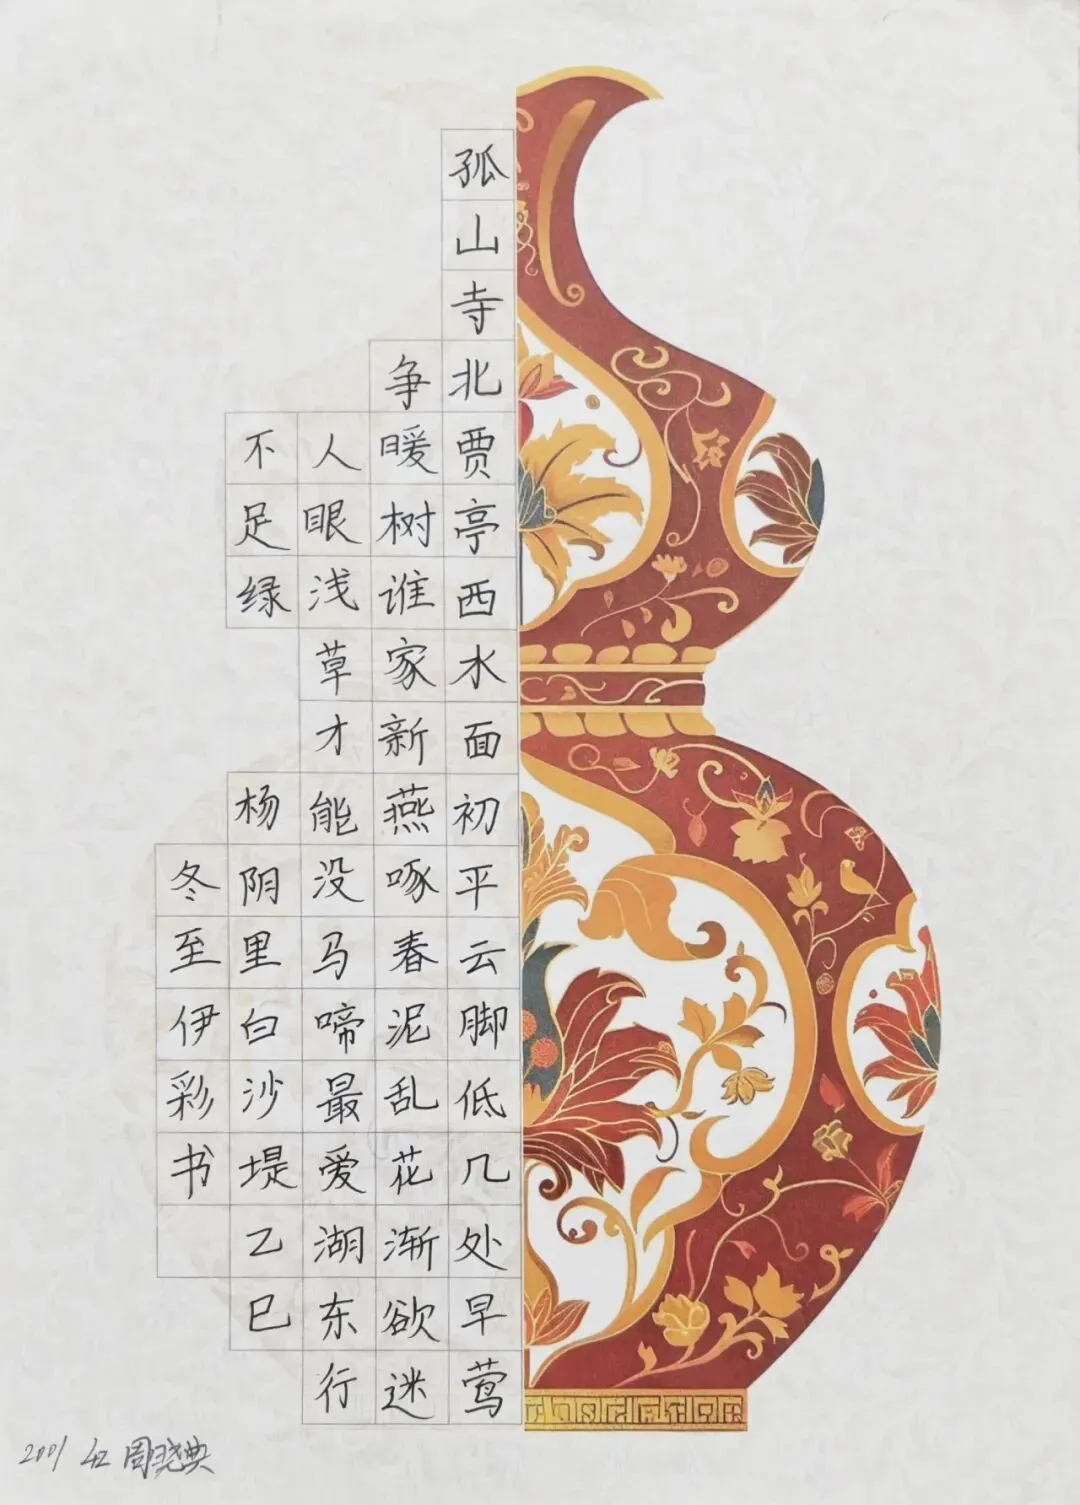 孤山寺北贾亭西水面初平云脚低几处早莺
争暖树谁家新燕啄春泥乱花渐欲迷
人眼浅草才能没马啼最爱湖东行
不足绿 杨阴里白沙堤乙巳
冬至伊彩书
2001 周晓典